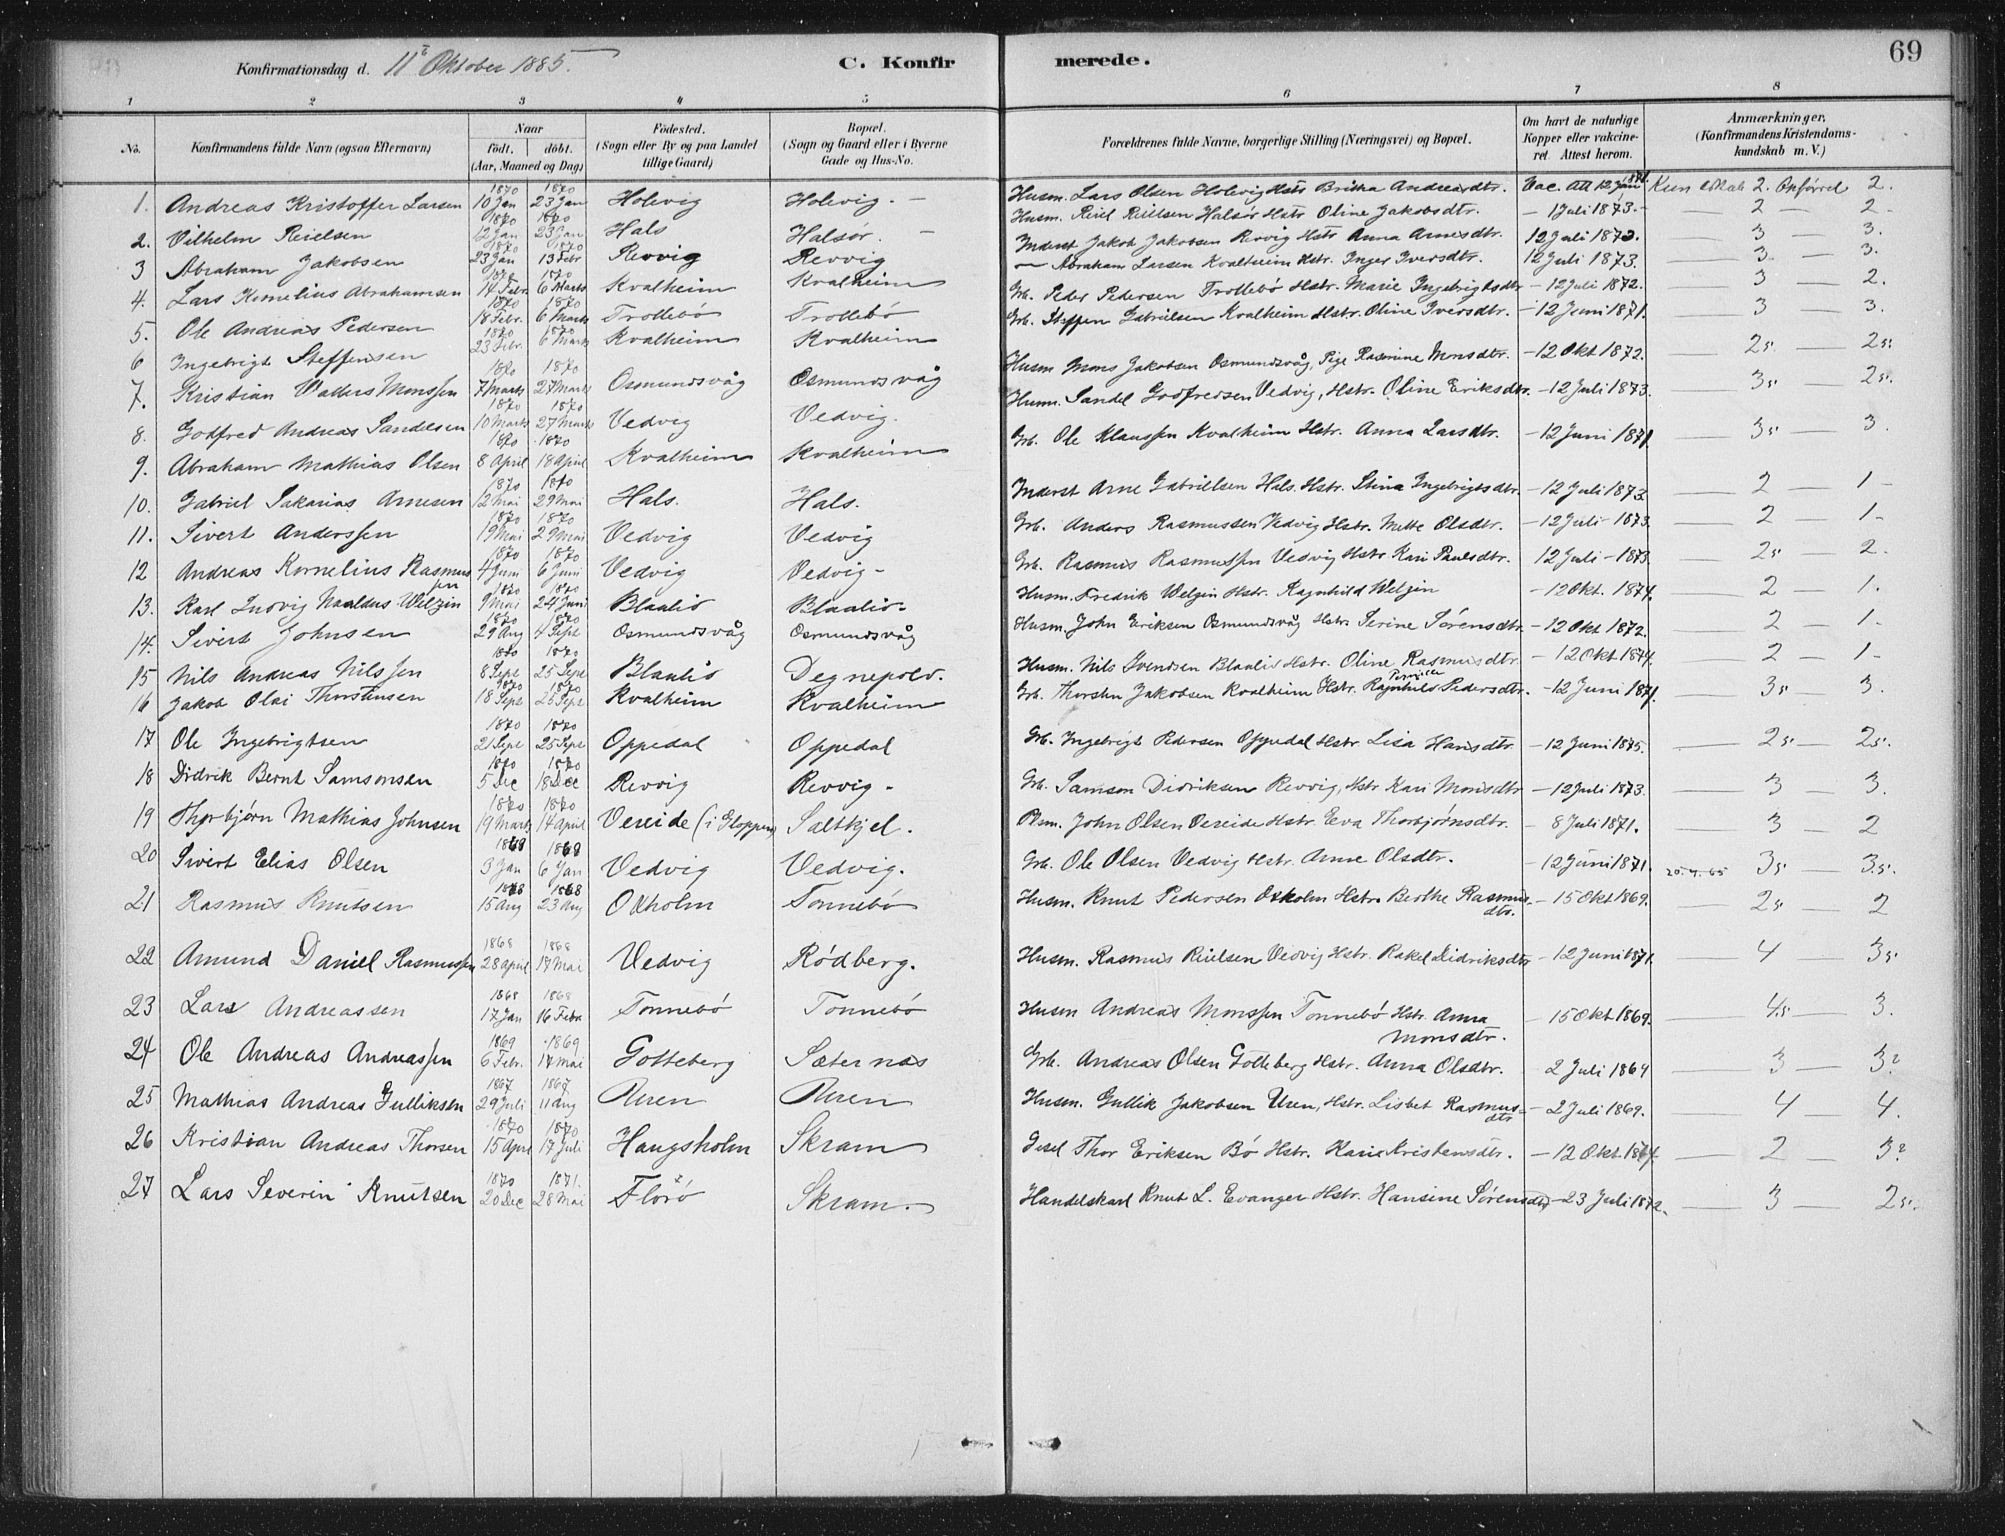 69
Konfirmationsdag d. 11te Oktober 1885.
C. Konfirmerede.
1 2 3 4 5 6 7 8
No. Konfirmandens fulde Navn (ogsaa Efternavn) Naar födt. döbt. (Aar, Maaned og Dag) Födested. (Sogn eller By og paa Landet tillige Gaard) Bopæl. (Sogn og Gaard eller i Byerne Gade og Hus-No. Forældrenes fulde Navne, borgerlige Stilling (Næringsvei) og Bopæl. Om havt de naturlige Kopper eller vakcineret. Attest herom. Anmærkninger, (Konfirmandens Kristendomskundskab m. V.)
1. Andreas Kristoffer Larsen 1870 10 Jan 1870 23 Jan Holevig Holevig. — Husm. Lars Olsen Holevig Hstr Britha Andreasdtr. Vac. Att 12 Juni 1871. Kundskab 2. Opförsel 2.
2. Vilhelm Reielsen 1870 12 Jan 1870 23 Jan Hals Halsør. — Husm. Reiel Reielsen Halsør Hstr Oline Jakobsdtr. — 1 Juli 1873. — 2 — 2.
3 Abraham Jakobsen 1870 23 Jan 1870 13 Febr Revvig Revvig Inderst Jakob Jakobsen Revvig Hstr Anna Arnesdtr. 12 Juli 1873. — 3 — 3.
4. Lars Kornelius Abrahamsen 1870 14 Febr. 1870 6 Marts Kvalheim Kvalheim — Abraham Larsen Kvalheim Hstr. Inger Iversdtr. 12 Juli 1873. — 3 — 3.
5. Ole Andreas Pedersen 1870 18 Febr. 1870 6 Marts Trollebö Trollebö Grb. Peder Pedersen Trollebö Hstr. Marie Ingebrigtsdtr — 12 Juli 1872. — 3 — 2.
6 Ingebrigt Steffensen 1870 23 Febr. 1870 6 Marts Kvalheim Kvalheim Grb. Steffen Gabrielsen Kvalheim Hstr. Oline Iversdtr. — 12 Juni 1871. — 3 — 3.
7. Kristian Monssen 1870 7 Marts 1870 27 Marts Osmundsvåg Osmundsvåg Husm Mons Jakobsen Osmundsvåg, Pige Rasmine Monsdtr. — 12 Okt 1872. — 2,5 — 2,5
8. Godfred Andreas Sandelsen 1870 10 Marts 1870 27 Marts Vedvig Vedvig. Husm. Sandel Godfredsen Vedvig, Hstr. Oline Eriksdtr. — 12 Juli 1873. — 3,5 — 2,5.
9. Abraham Mathias Olsen 1870 8 April 1870 18 April Kvalheim Kvalheim Grb. Ole Klaussen Kvalheim Hstr. Anna Larsdtr. — 12 Juni 1871. — 3,5 — 3.
10. Gabriel Sakarias Arnesen 1870 12 Mai 1870 29 Mai Hals. Hals. Inderst Arne Gabrielsen Hals. Hstr. Stina Ingebrigtsdtr. — 12 Juli 1873 — 2 — 1-
11. Sivert Anderssen 1870 19 Mai 1870 29 Mai Vedvig Vedvig Grb. Anders Rasmussen Vedvig Hstr. Mette Olsdtr. — 12 Juli 1873. — 2 — 1-
12 Andreas Kornelius Rasmussen 1870 4 Juni 1870 6 Juni Vedvig Vedvig - Grb. Rasmus Rasmussen Vedvig Hstr Kari Paulsdtr. 12 Juli - 1873. — 2,5 — 2.
13. Karl Ludvig Welzin 1870 9 Mai 1870 24 Juni Blaalid Blaalid. Husm. Fredrik Welzin Hstr. Ragnhild Welzin — 12 Okt. 1874. — 2 — 1.
14. Sivert Johnsen 1870 29 Aug 1870 4 Sept Osmundsvåg Osmundsvåg Husm. John Eriksen Osmundsvåg Hstr. Serine Sørensdtr. — 12 Okt 1872. — 2 — 1-
15 Nils Andreas Nilssen 1870 8 Sept 1870 25 Sept Blaalid Degnepold. Husm. Nils Svendsen Blaalid Hstr. Oline Rasmusdtr. — 12 Okt 1874. — 2 — 1-
16 Jakob Olai Thorstensen 1870 18 Sept 1870 25 Sept Kvalheim Kvalheim Grb. Thorsten Jakobsen Kvalheim Hstr. Ragnhild Pedersdtr. — 12 Juni 1871. — 3,5 — 3.
17 Ole Ingebrigtsen 1870 21 Sept 1870 25 Sept Oppedal Oppedal Grb. Ingebrigt Pedersen Oppedal Hstr. Lisa Hansdtr — 12 Juni 1875. — 2,5 — 2,5.
18 Didrik Bernt Samsonsen 1870 5 Dec 1870 18 Dec Revvig Revvig - Grb. Samson Didriksen Revvig, Hstr Kari Monsdtr — 12 Juli 1873. — 3 — 3.
19 Thorbjørn Mathias Johnsen 1870 19 Marts 1870 14 April Vereide (i Gloppen) Saltkjel. Plsm. John Olsen Vereide Hstr. Eva Thorbjørnsdtr. — 8 Juli 1871. — 3 — 2
20 Sivert Elias Olsen 1869 3 Jan 1869 6 Jan Vedvig Vedvig. Grb. Ole Olsen Vedvig Hstr. Anne Olsdtr. — 12 Juni 1871. — 3,5 — 3,5.
21 Rasmus Knutsen 1868 15 Aug 1868 23 Aug Oxholm Tonnebö Husm. Knut Pedersen Oxholm Hstr. Berthe Rasmusdtr. — 15 Okt 1869. — 2,5 — 2
22 Amund Daniel Rasmussen 1868 28 April 1868 17 Mai Vedvig Rödberg. Husm. Rasmus Reielsen Vedvig Hstr. Rakel Didriksdtr — 12 Juni 1871. — 4 — 3,5
23 Lars Andreassen 1868 17 Jan 1868 16 Febr Tonnebö Tonnebö Husm Andreas Monssen Tonnebö Hstr. Anna Monsdtr. — 15 Okt 1869. — 4,5 — 3.
24 Ole Andreas Andreassen 1869 6 Febr. 1869 17 Mai Gotteberg Sæternæs Grb. Andreas Olsen Gotteberg Hstr. Anna Olsdtr. — 2 Juli 1869 — 3 — 3?
25 Mathias Andreas Gulliksen 1867 29 Juli 1867 11 Aug Uren Uren Husm. Gullik Jakobsen Uren, Hstr. Lisbet Rasmusdtr — 2 Juli 1869. — 4 — 4.
26 Kristian Andreas Thorsen 1870 15 April 1870 17 Juli Haugsholm Skram Thor Eriksen Bö Hstr. — 12 Okt — 2 — 3?
27 Lars Severin Knutsen 1870 20 Dec 1871. 28 Mai Florö Skram. Handelskarl Knut L. Evanger Hstr. Hansine Sörensdtr — 23 Juli 1872. — 3 — 2,5.